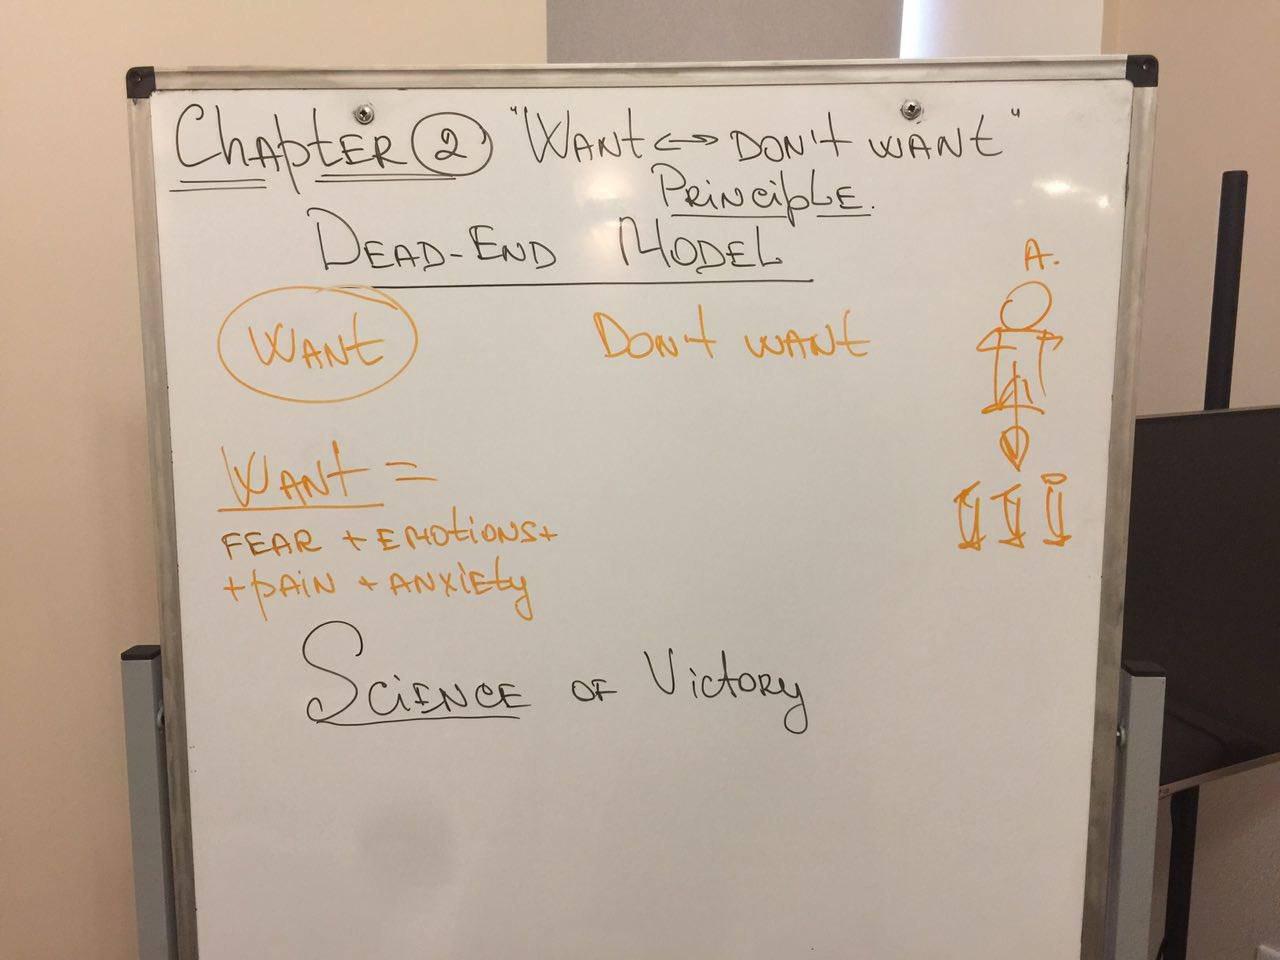 Chapter 2 "Want <-> Don't want"
Principle.
Dead-End Model
A.
Want Don't want
Want =
Fear + Emotions +
+ pain + anxiety
Science of Victory